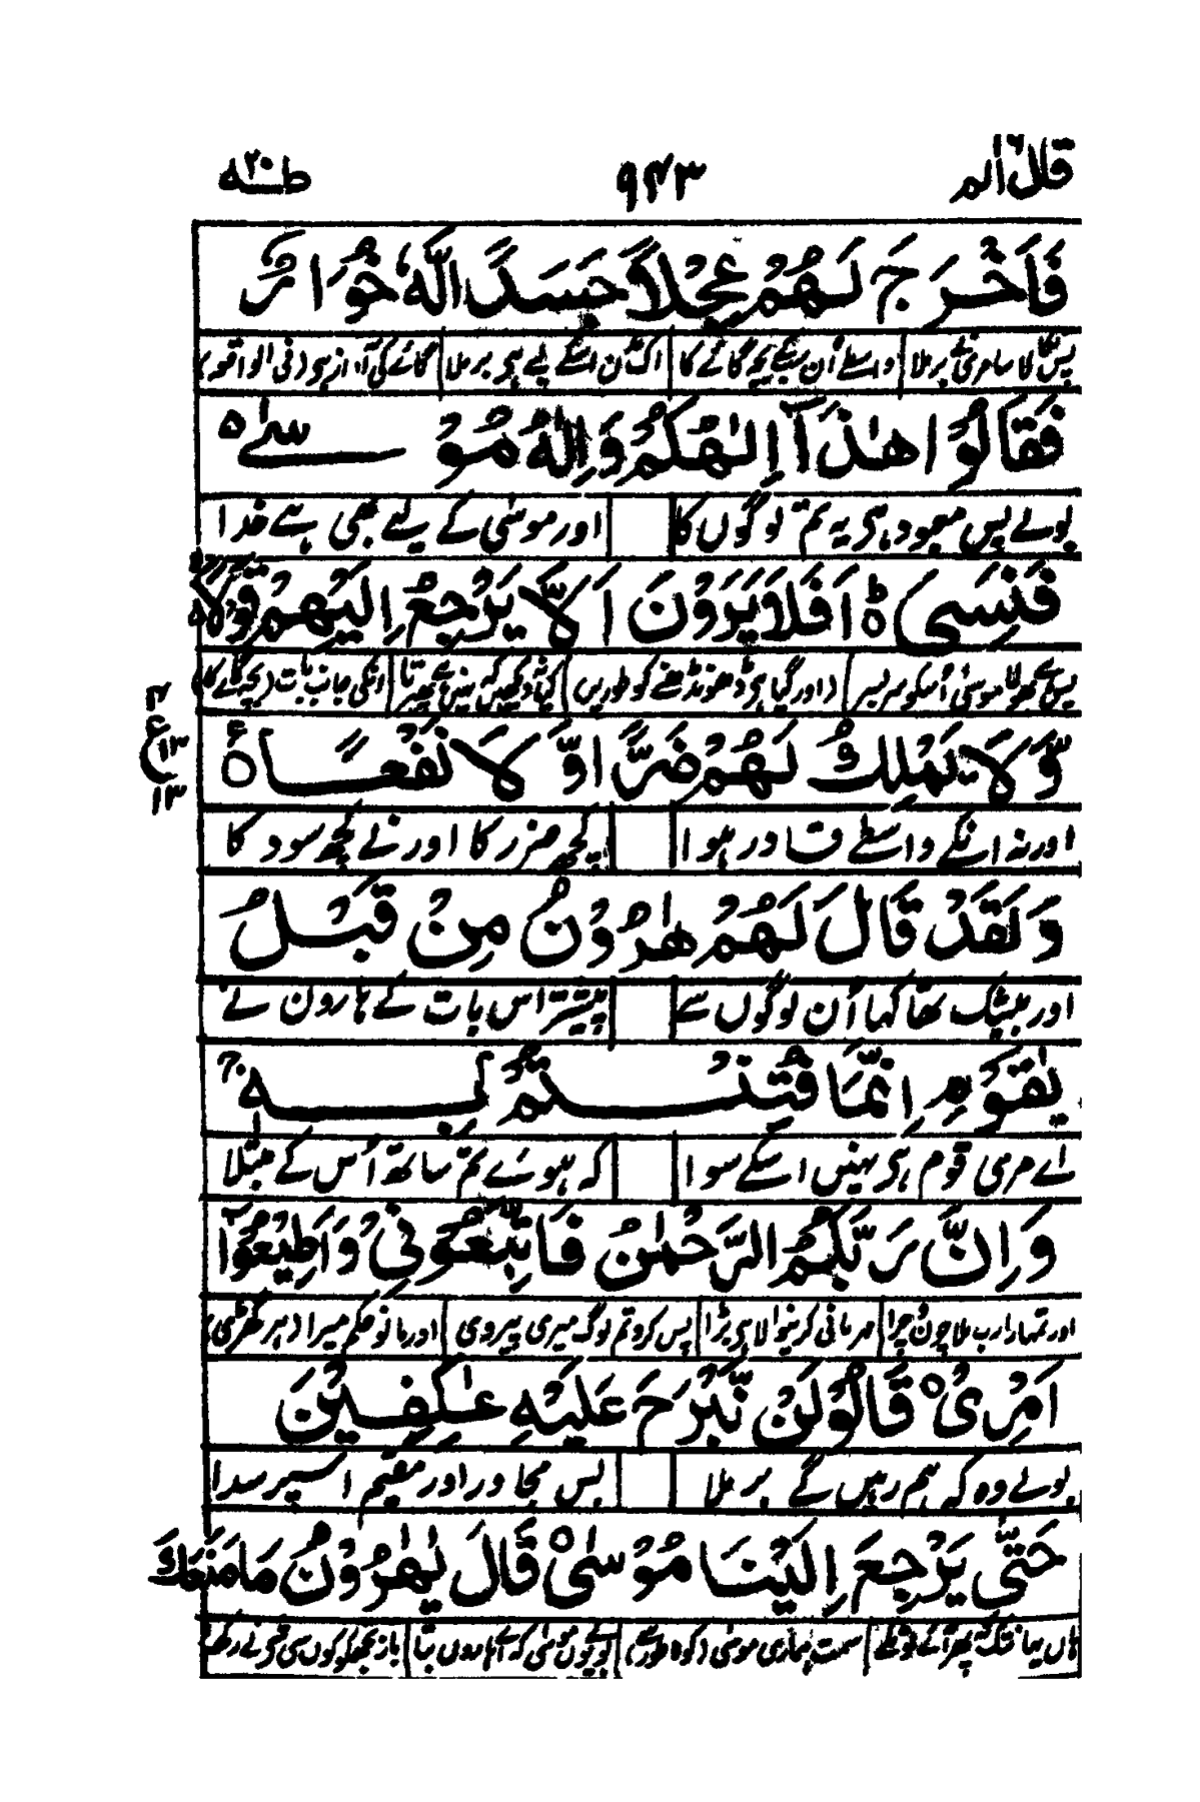 قال الم ١٦ ٩٤٣ طٰهٰ ٢٠
فَاَخْرَجَ لَهُمْ عِجْلًا جَسَدًا لَّهٗ خُوَارٌ
پس نکالا سامری نے برملا واسطے اُن کے بچہ گائے کا اک تن اسکے لیے ہی برملا گائے کی آواز ہو (فی الواقعہ)
فَقَالُوْا هٰذَآ اِلٰهُكُمْ وَاِلٰهُ مُوْسٰى ۵
بولے پس معبود ہی یہ تم لوگوں کا اور موسٰی کے لیے بھی ہے خدا
فَنَسِىَ ۵ اَفَلَا يَرَوْنَ اَلَّا يَرْجِعُ اِلَيْهِمْ قَوْلًا ۵
پس بھولا موسٰی اُسکو سر بسر (اور گیا ہی ڈھونڈھنے کو طور پر) کیا نہ دیکھیں کہ نہیں ہے پھیرتا انکی جانب بات (بچہ گائے کا)
وَّلَا يَمْلِكُ لَهُمْ ضَرًّا وَّلَا نَفْعًا ۵
ع ١٣ ١٣
اور نہ انکے واسطے قادر ہوا کچھ ضرر کا اور نے کچھ سود کا
وَلَقَدْ قَالَ لَهُمْ هٰرُوْنُ مِنْ قَبْلُ
اور بیشک تھا کہا اُن لوگوں سے پیشتر اس بات کے ہارون نے
يٰقَوْمِ اِنَّمَا فُتِنْتُمْ بِهٖ
اے مری قوم ہی نہیں اسکے سوا کہ ہوئے تم ساتھ اُس کے مبتلا
وَاِنَّ رَبَّكُمُ الرَّحْمٰنُ فَاتَّبِعُوْنِىْ وَاَطِيْعُوْٓا
اور تمہارا رب بلا چون و چرا مہربانی کرنیوالا ہی بڑا پس کرو تم لوگ میری پیروی اور مانو حکم میرا (ہر گھڑی)
اَمْرِىْ ۵ قَالُوْا لَنْ نَّبْرَحَ عَلَيْهِ عٰكِفِيْنَ
بولے وہ کہ ہم رہیں گے برملا بس مجاور اور مقیم اسپر سدا
حَتّٰى يَرْجِعَ اِلَيْنَا مُوْسٰى ۵ قَالَ يٰهٰرُوْنُ مَا مَنَعَكَ
ہاں یہانتک پھر آئے سمت ہماری موسٰی (کوہ طور سے) بولے یوں موسٰی کہ اے ہاروں بتا باز تجھکو کس نے رکھا